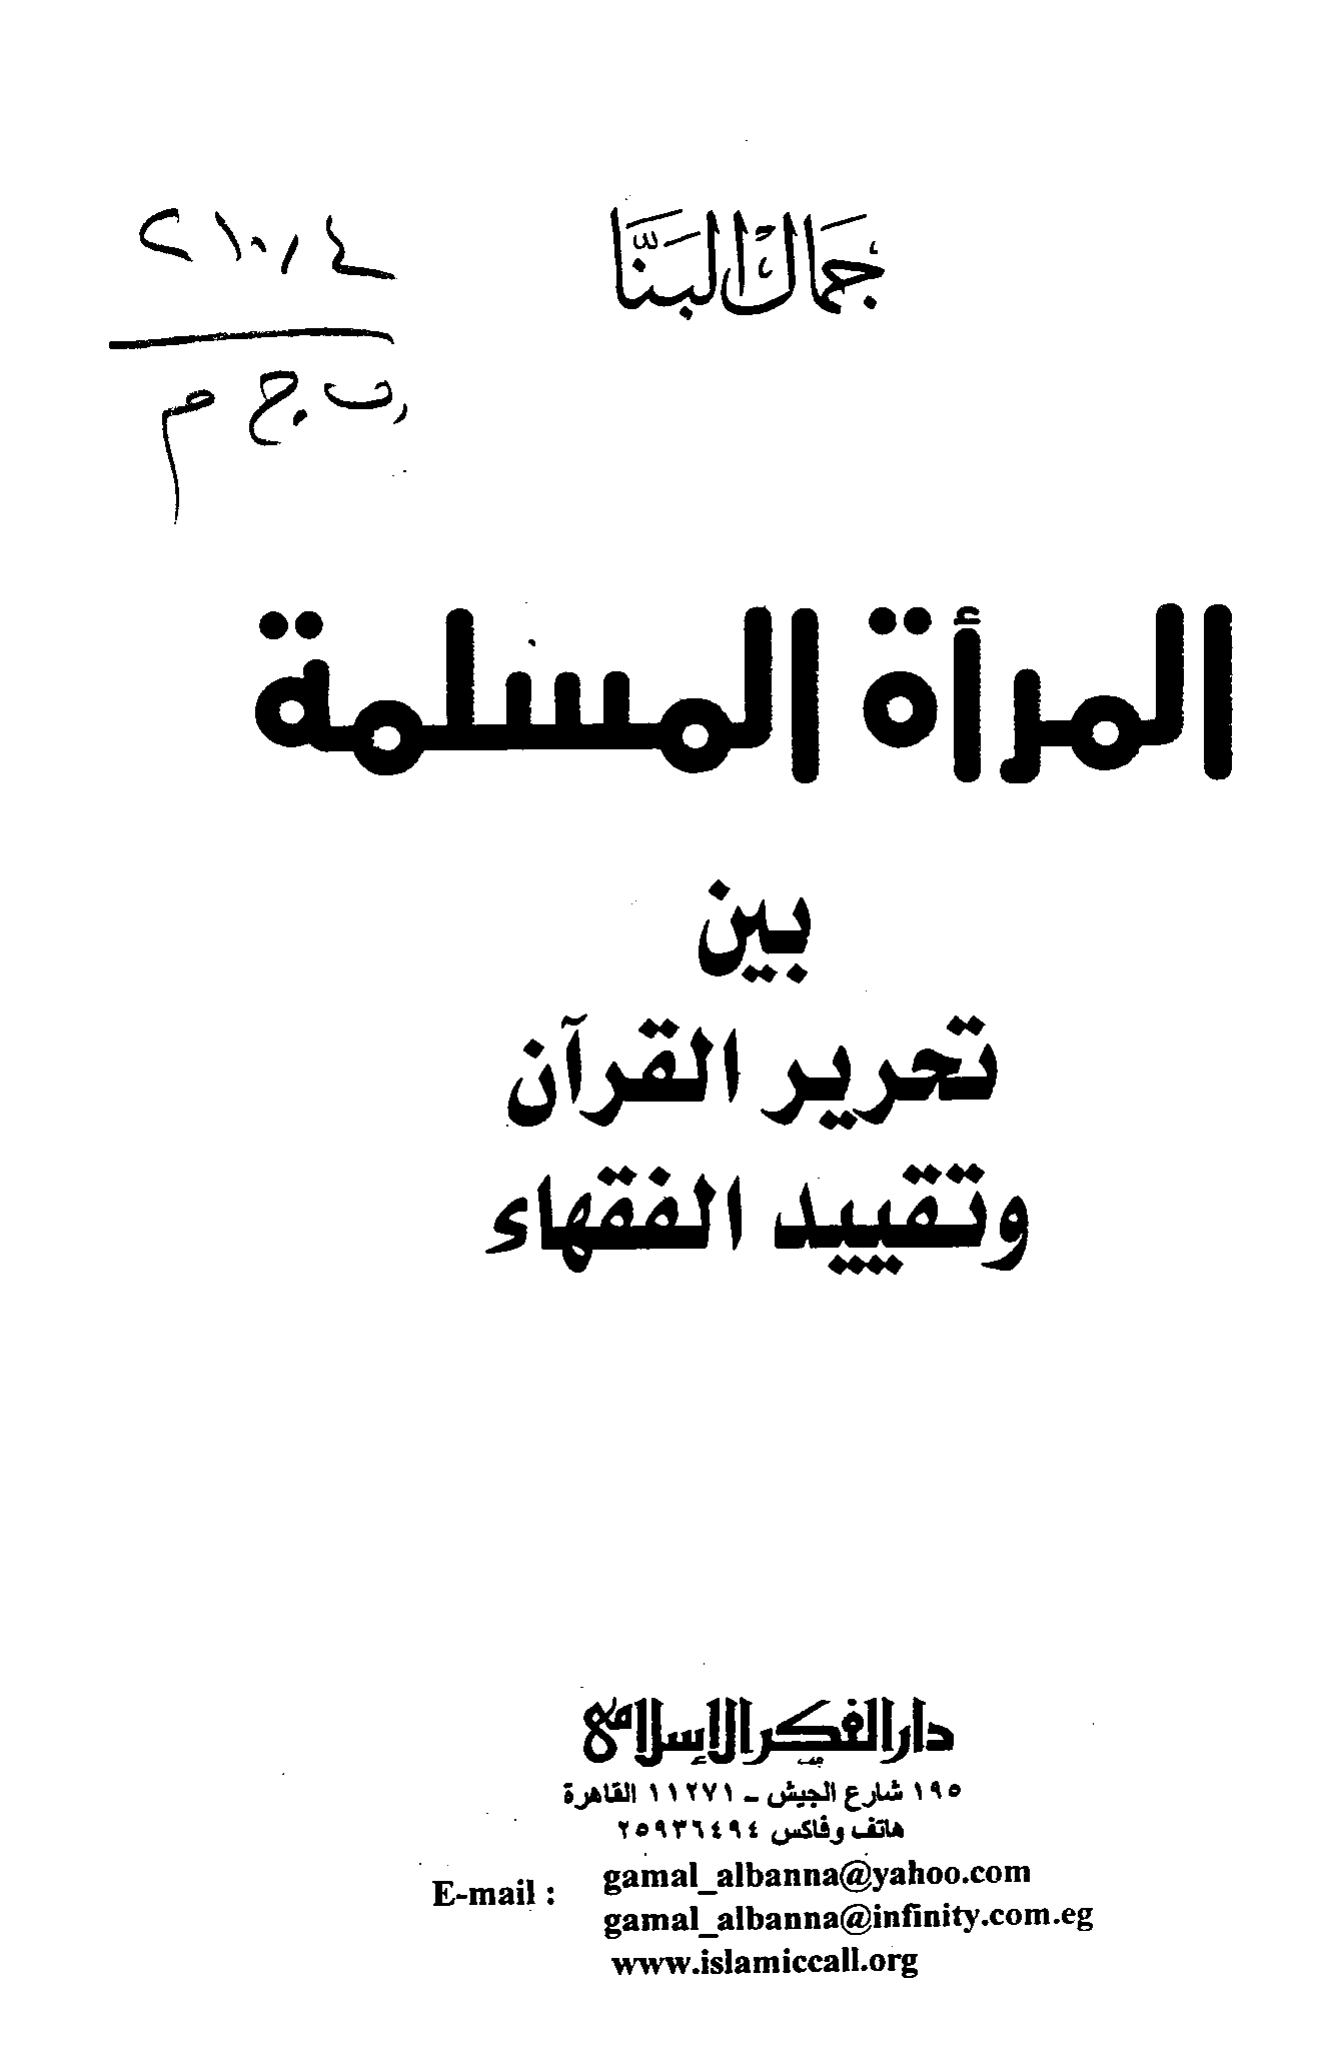 جمال البنا
٢١٠٫٤
ب ج م
المرأة المسلمة
بين
تحرير القرآن
وتقييد الفقهاء
دار الفكر الإسلامى
١٩٥ شارع الجيش - ١١٢٧١ القاهرة
هاتف وفاكس ٢٥٩٣٦٤٩٤
E-mail : gamal_albanna@yahoo.com
gamal_albanna@infinity.com.eg
www.islamiccall.org